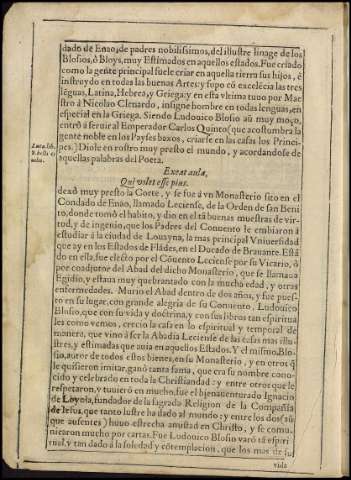 dado de Enao, de padres nobilissimos, del illustre linage de los
Blosios, ò Bloys, muy Estimados en aquellos estados. Fue criado
como la gente principal suele criar en aquella tierra sus hijos, è
instruydo en todas las buenas Artes: y supo cõ excelẽcia las tres
lẽguas, Latina, Hebrea, y Griega: y en esta vltima tuuo por Mae
stro à Nicolao Clenardo, insigne hombre en todas lenguas, en
especial en la Griega. Siendo Ludouico Blosio aũ muy moço,
entrò à seruir al Emperador Carlos Quinto (que acostumbra la
gente noble en los Payses baxos, criarse en las casas los Princi-
pes.) Diole en rostro muy presto el mundo, y acordandose de
aquellas palabras del Poeta.
Exeat aula,
Qui volet esse pius.
dexò muy presto la Corte, y se fue à vn Monasterio sito en el
Condado de Enao, llamado Leciense, de la Orden de san Beni
to, donde tomò el habito, y dio en el tã buenas muestras de vir-
tud, y de ingenio, que los Padres del Conuento le embiaron à
estudiar à la ciudad de Louayna, la mas principal Vniuersidad
que ay en los Estados de Flãdes, en el Ducado de Brauante. Està
do en ella, fue electo por el Cõuento Leciense por su Vicario, ò
por coadjutor del Abad del dicho Monasterio, que se llamaua
Egidio, y estaua muy quebrantado con la mucha edad, y otras
enfermedades. Murio el Abad dentro de dos años, y fue pues-
to en su lugar, con grande alegria de su Conuento, Ludouico
Blosio, que con su vida y doctrina, y con sus libros tan espiritua
les como vemos, crecio la casa en lo espiritual y temporal de
manera, que vino à ser la Abadia Leciense de las casas mas illu-
stres, y estimadas que auia en aquellos Estados. Y el mismo, Blo-
sio, autor de todos estos bienes, en su Monasterio, y en otros q̃
le quisieron imitar, ganò tanta fama, que era su nombre cono-
cido y celebrado en toda la Christiandad: y entre otros que le
respetaron, y tuuierõ en mucho, fue el bienauenturado Ignacio
de Loyola, fundador de la sagrada Religion de la Compañia
de Iesus, que tanto lustre ha dado al mundo: y entre los dos (aũ
que ausentes) huuo estrecha amistad en Christo, y se comu-
nicaron mucho por cartas. Fue Ludouico Blosio varõ tã espiri
tual, y tan dado à la soledad y cõtemplacion, que los mas de su
vida